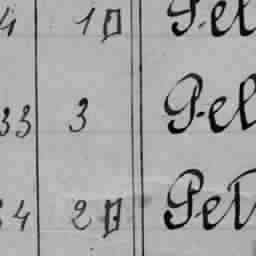 4 1 Pel
33 3 Pel
34 2 Pet